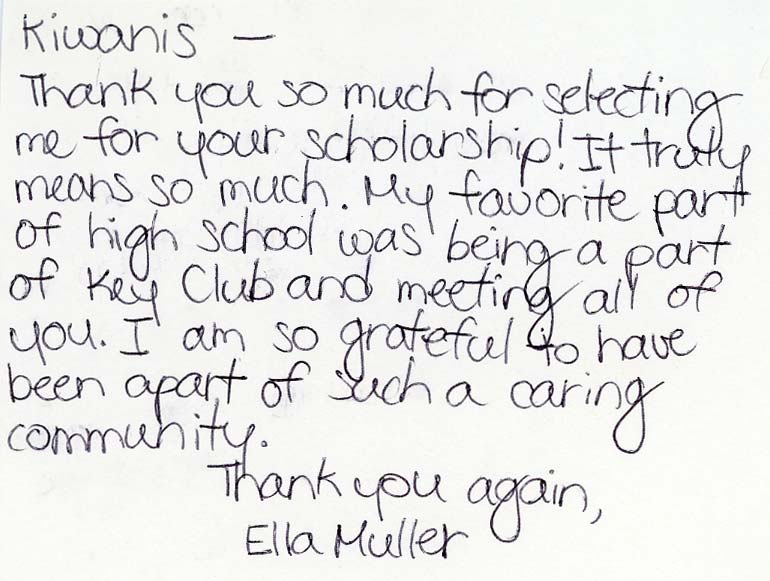 Kiwanis —
Thank you so much for selecting
me for your scholarship! It truly
means so much. My favorite part
of high school was being a part
of Key Club and meeting all of
you. I am so grateful to have
been apart of such a caring
community.
Thank you again,
Ella Muller